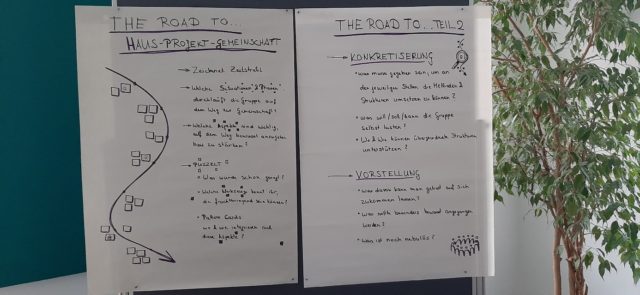 THE ROAD TO...
HAUS-PROJEKT-GEMEINSCHAFT
Zeichnet Zeitstrahl
Welche Situationen & Phasen
durchläuft die Gruppe auf
dem Weg zur Gemeinschaft?
Welche Aspekte sind wichtig,
auf dem Weg bewusst anzugehen
bzw zu stärken?
PUZZELT
Was wurde schon genutzt?
Welche Werkzeuge kennt ihr,
die fruchtbringend sein können?
Pattern Cards
wo & wen integrieren
diese Aspekte?
THE ROAD TO... TEIL 2
KONKRETISIERUNG
was muss gegeben sein, um an
der jeweiligen Stelle die Methoden &
Strukturen umsetzen zu können?
was will/soll/kann die Gruppe
selbst leisten?
Wo & Wie können übergeordnete Strukturen
unterstützen?
VORSTELLUNG
Was davon kann man getrost auf sich
zukommen lassen?
Was sollte besonders bewusst angegangen
werden?
Was ist noch nebulös?